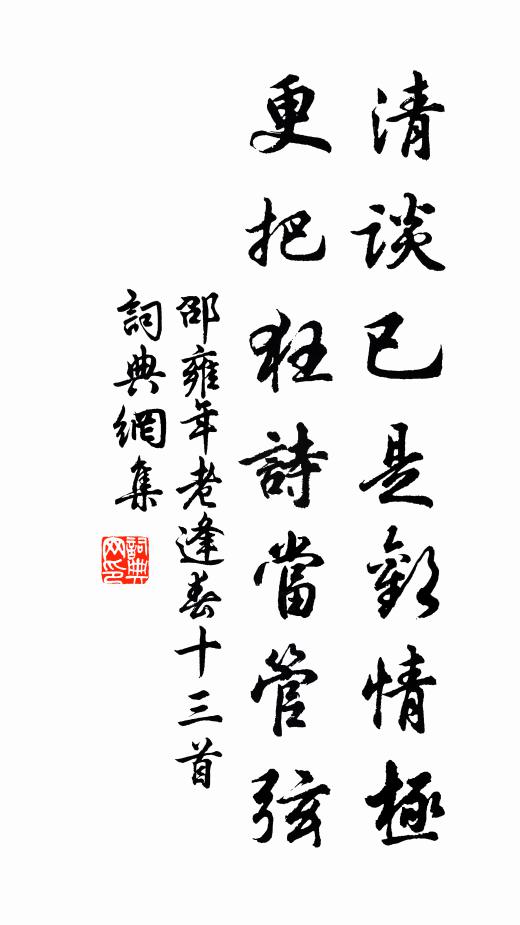 清談已是歡情極
更把狂詩當管弦
邵雍年老逢春十三首
詞典網集
詞典
网印